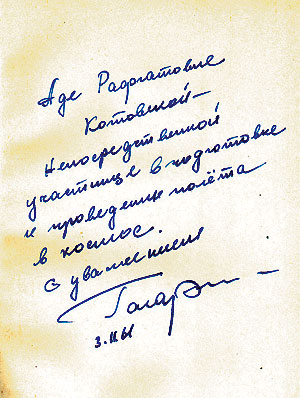 Аде Радгатовне
Котовской –
Непосредственной
участнице в подготовке
и проведении полёта
в космос.
С уважением
Гагарин